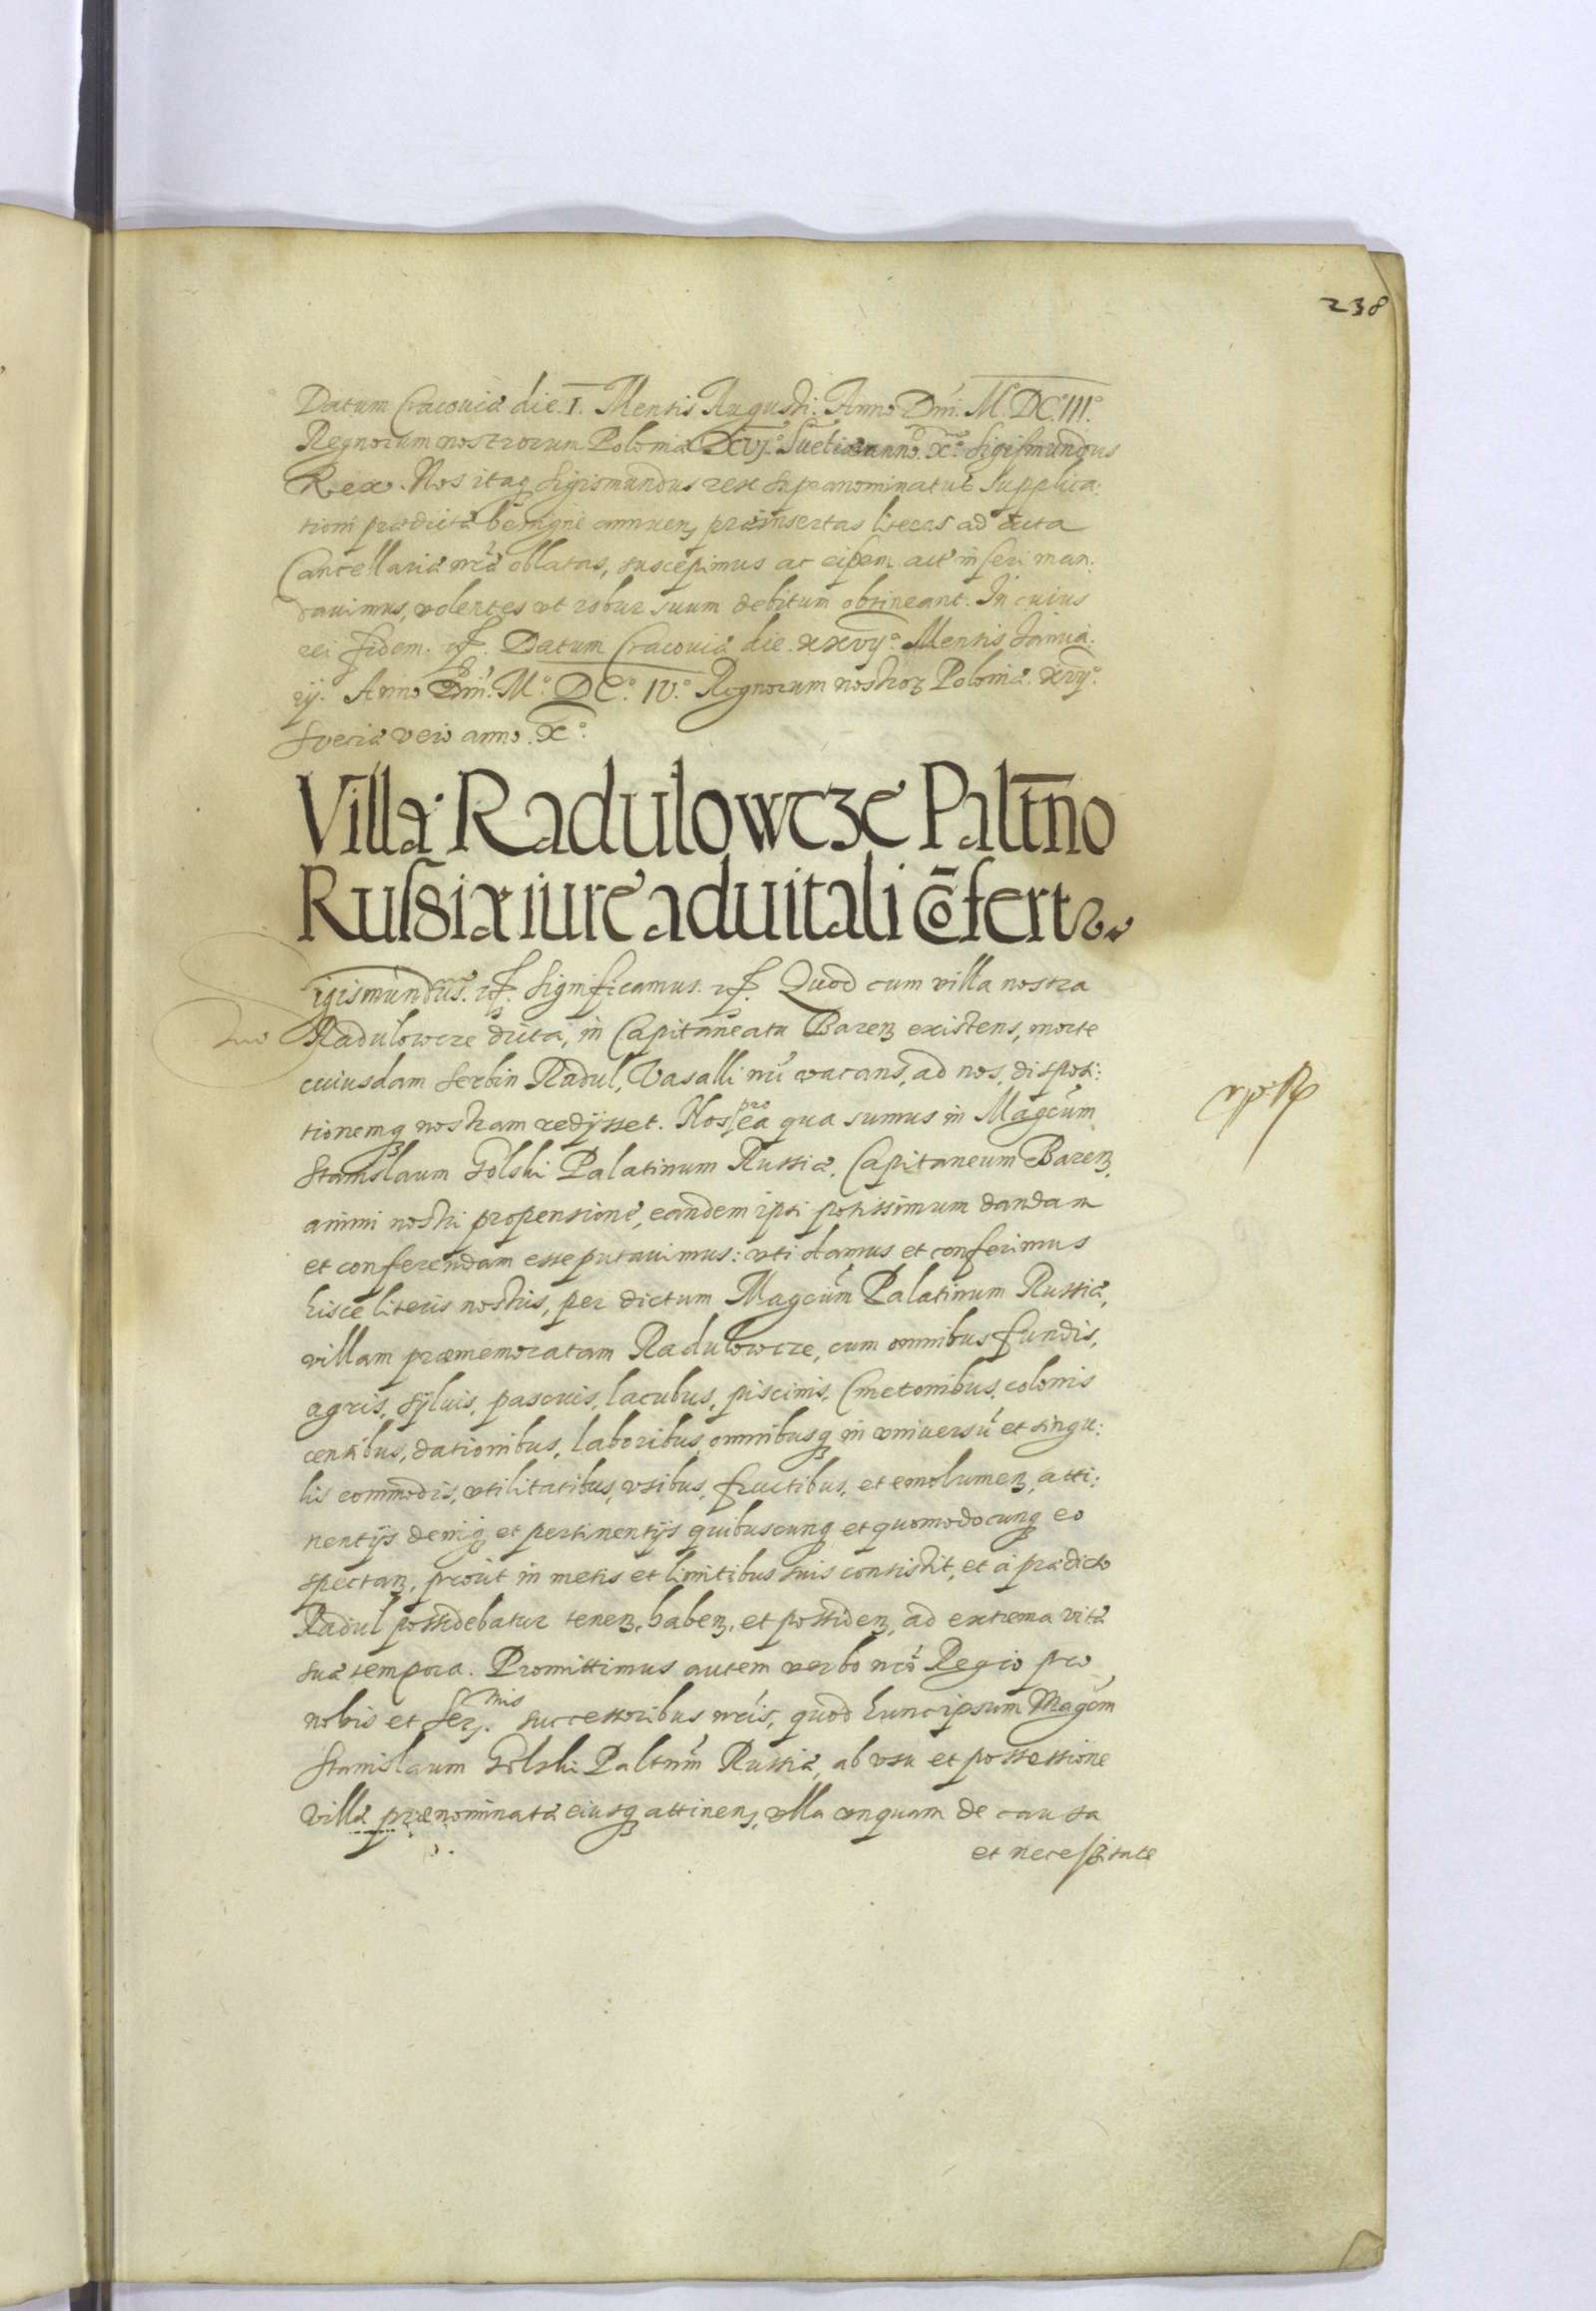 238
Datum Cracouiæ die. I. Mensis Augusti. Anno Dni. M. DC. III.°
Regnorum nostrorum Poloniæ Xvj.° Suetiæ anno. X.° Sigismundus
Rex. Nos itaq Sigismundus rex supranominatus supplica:
tioni prædictæ benigne annuen, præinsertas literas ad acta
Cancellariæ nræ oblatas, suscepimus ac eisdem actis inseri man:
dauimus, volentes vt robur suum debitum obtineant. In cuius
rei fidem. Datum Cracouiæ die. xxvij.° Mensis Janua:
rij. Anno Dni. M.° DC.° IV.° Regnorum nostroꝝ Poloniæ. xvij.°
Sueciæ vero anno. X.°
Villa Radulowcze Paltno
Russiæ iure aduitali cōfertr
Sigismundus. Significamus. Quod cum villa nostra
Radulowcze dicta, in Capitaneatu Baren existens, morte
cuiusdam Serbin Radul, Vasalli nri vacans, ad nos, disposi:
tionemq nostram redijsset. Nos pro ea qua sumus in Magcum
Stanislaum Golski Palatinum Russiæ, Capitaneum Baren,
animi nostri propensione, eandem ipsi potissimum dandam
et conferendam esse putauimus: vti damus et conferimus
hisce literis nostris, per dictum Magcum Palatinum Russiæ,
villam præmemoratam Radulowcze, cum omnibus fundis,
agris, syluis, pascuis, lacubus, piscinis, Cmetonibus, colonis
censibus, dationibus, laboribus, omnibusq in vniuersu et singu:
lis commodis, vtilitatibus, vsibus, fructibus, et emolumen, atti:
nentijs deniq et pertinentijs quibuscunq et quomodocunq eo
spectan, prout in metis et limitibus suis consistit, et a prædicto
Radul possidebatur tenen, haben, et possiden, ad extrema vitæ
suæ tempora. Promittimus autem verbo nro Regio pro
nobis et Ser.mis successoribus nris, quod hunc ipsum Magcm
Stanislaum Golski Paltnm Russiæ, ab vsu et possessione
villæ prænominatæ eiusq attinen, vlla vnquam de causa
et necessitate